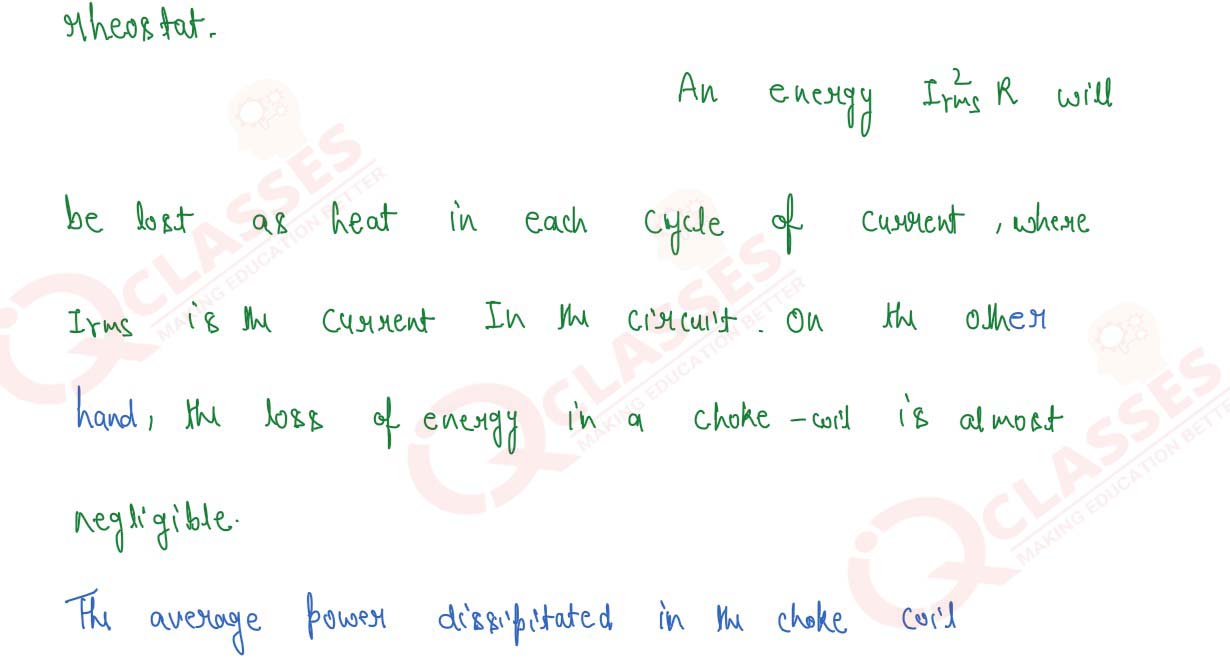 rheostat.
An energy I²rms R will
be lost as heat in each cycle of current, where
Irms is the current In the circuit. On the other
hand, the loss of energy in a choke-coil is almost
negligible.
The average power dissipitated in the choke coil
iQ CLASSES
MAKING EDUCATION BETTER
iQ CLASSES
MAKING EDUCATION BETTER
iQ CLASSES
MAKING EDUCATION BETTER